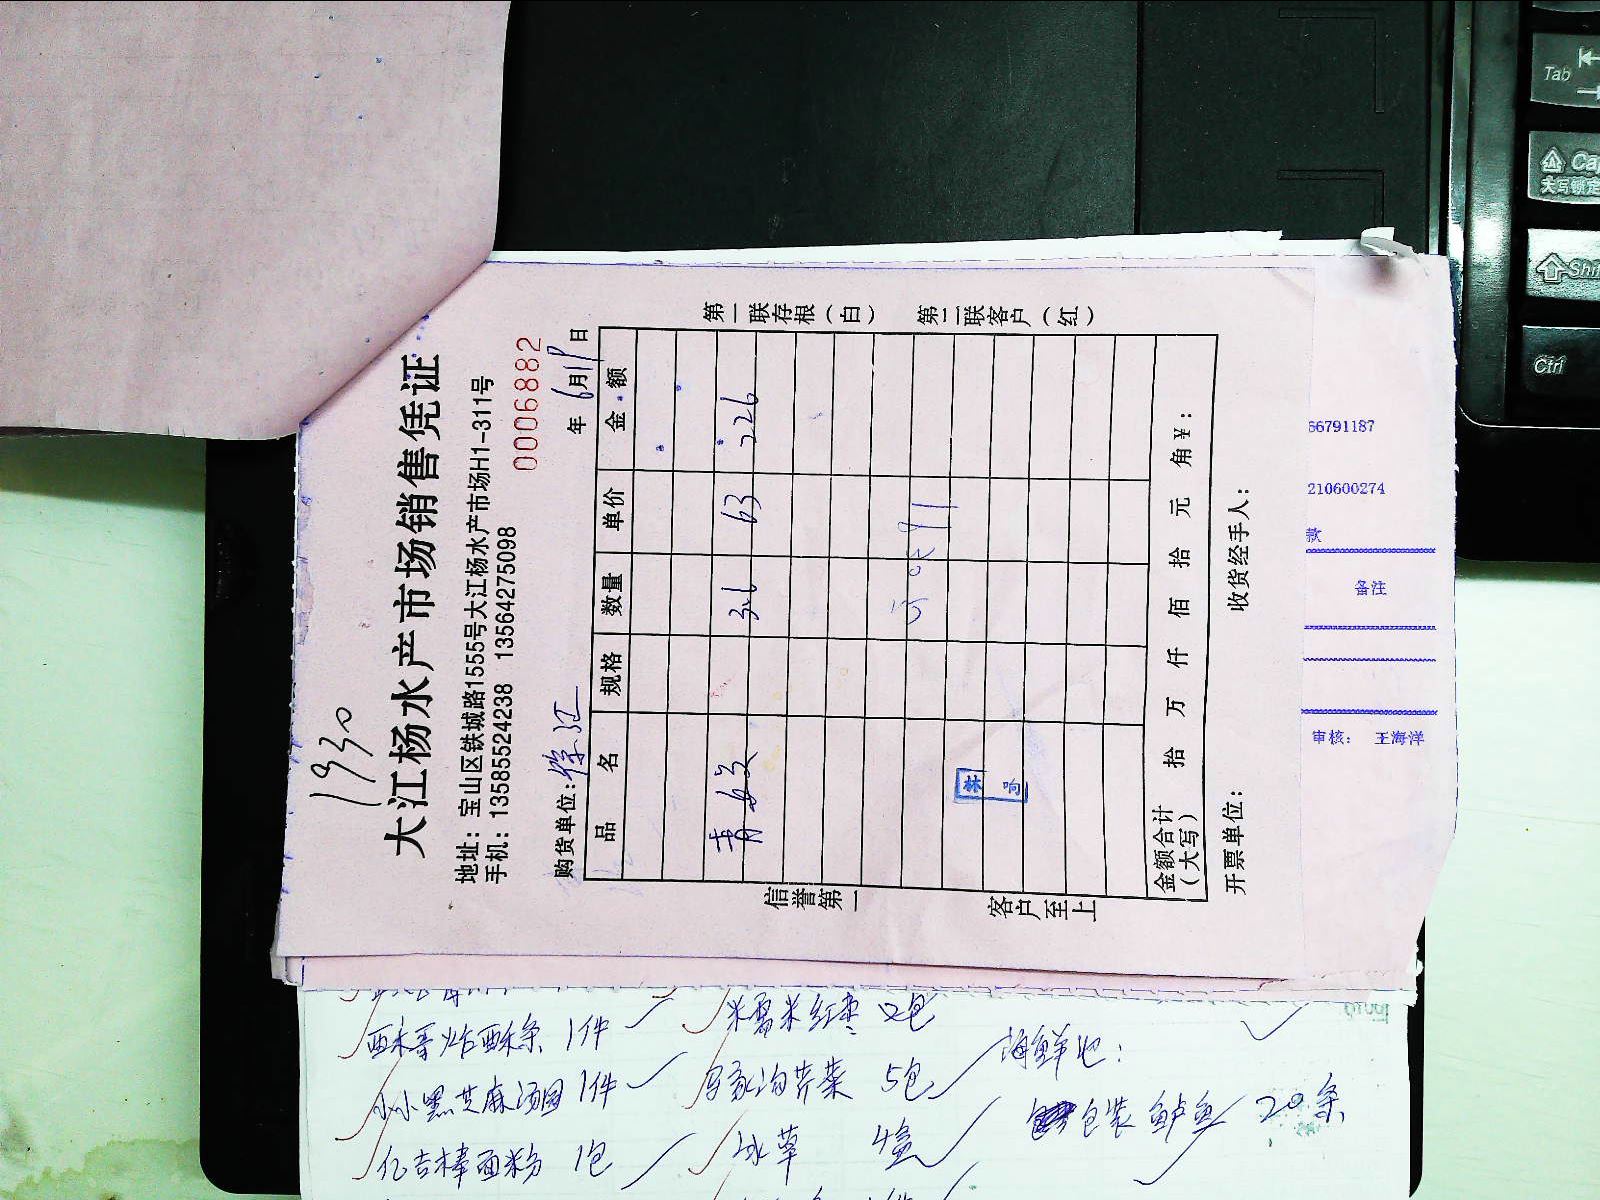 1930
大江杨水产市场销售凭证
地址：宝山区铁城路1555号大江杨水产市场H1-311号
手机：13585524238 13564275098
0006882
购货单位：徐汇 年 6月19日
品名 规格 数量 单价 金额
3.6 63 226
金额合计（大写） 拾 万 仟 佰 拾 元 角 ¥：
开票单位： 收货经手人：
信誉第一 客户至上
第一联存根（白） 第二联客户（红）
66791187
210600274
备注
审核： 王海洋
小小黑芝麻汤圆 1件
亿吉棒面粉 1包
米需米红枣 2包
马家沟芹菜 5包
冰草 4盒
海鲜池：
包装鲈鱼 20条
Tab
Cap
大写锁定
Shif
Ctrl